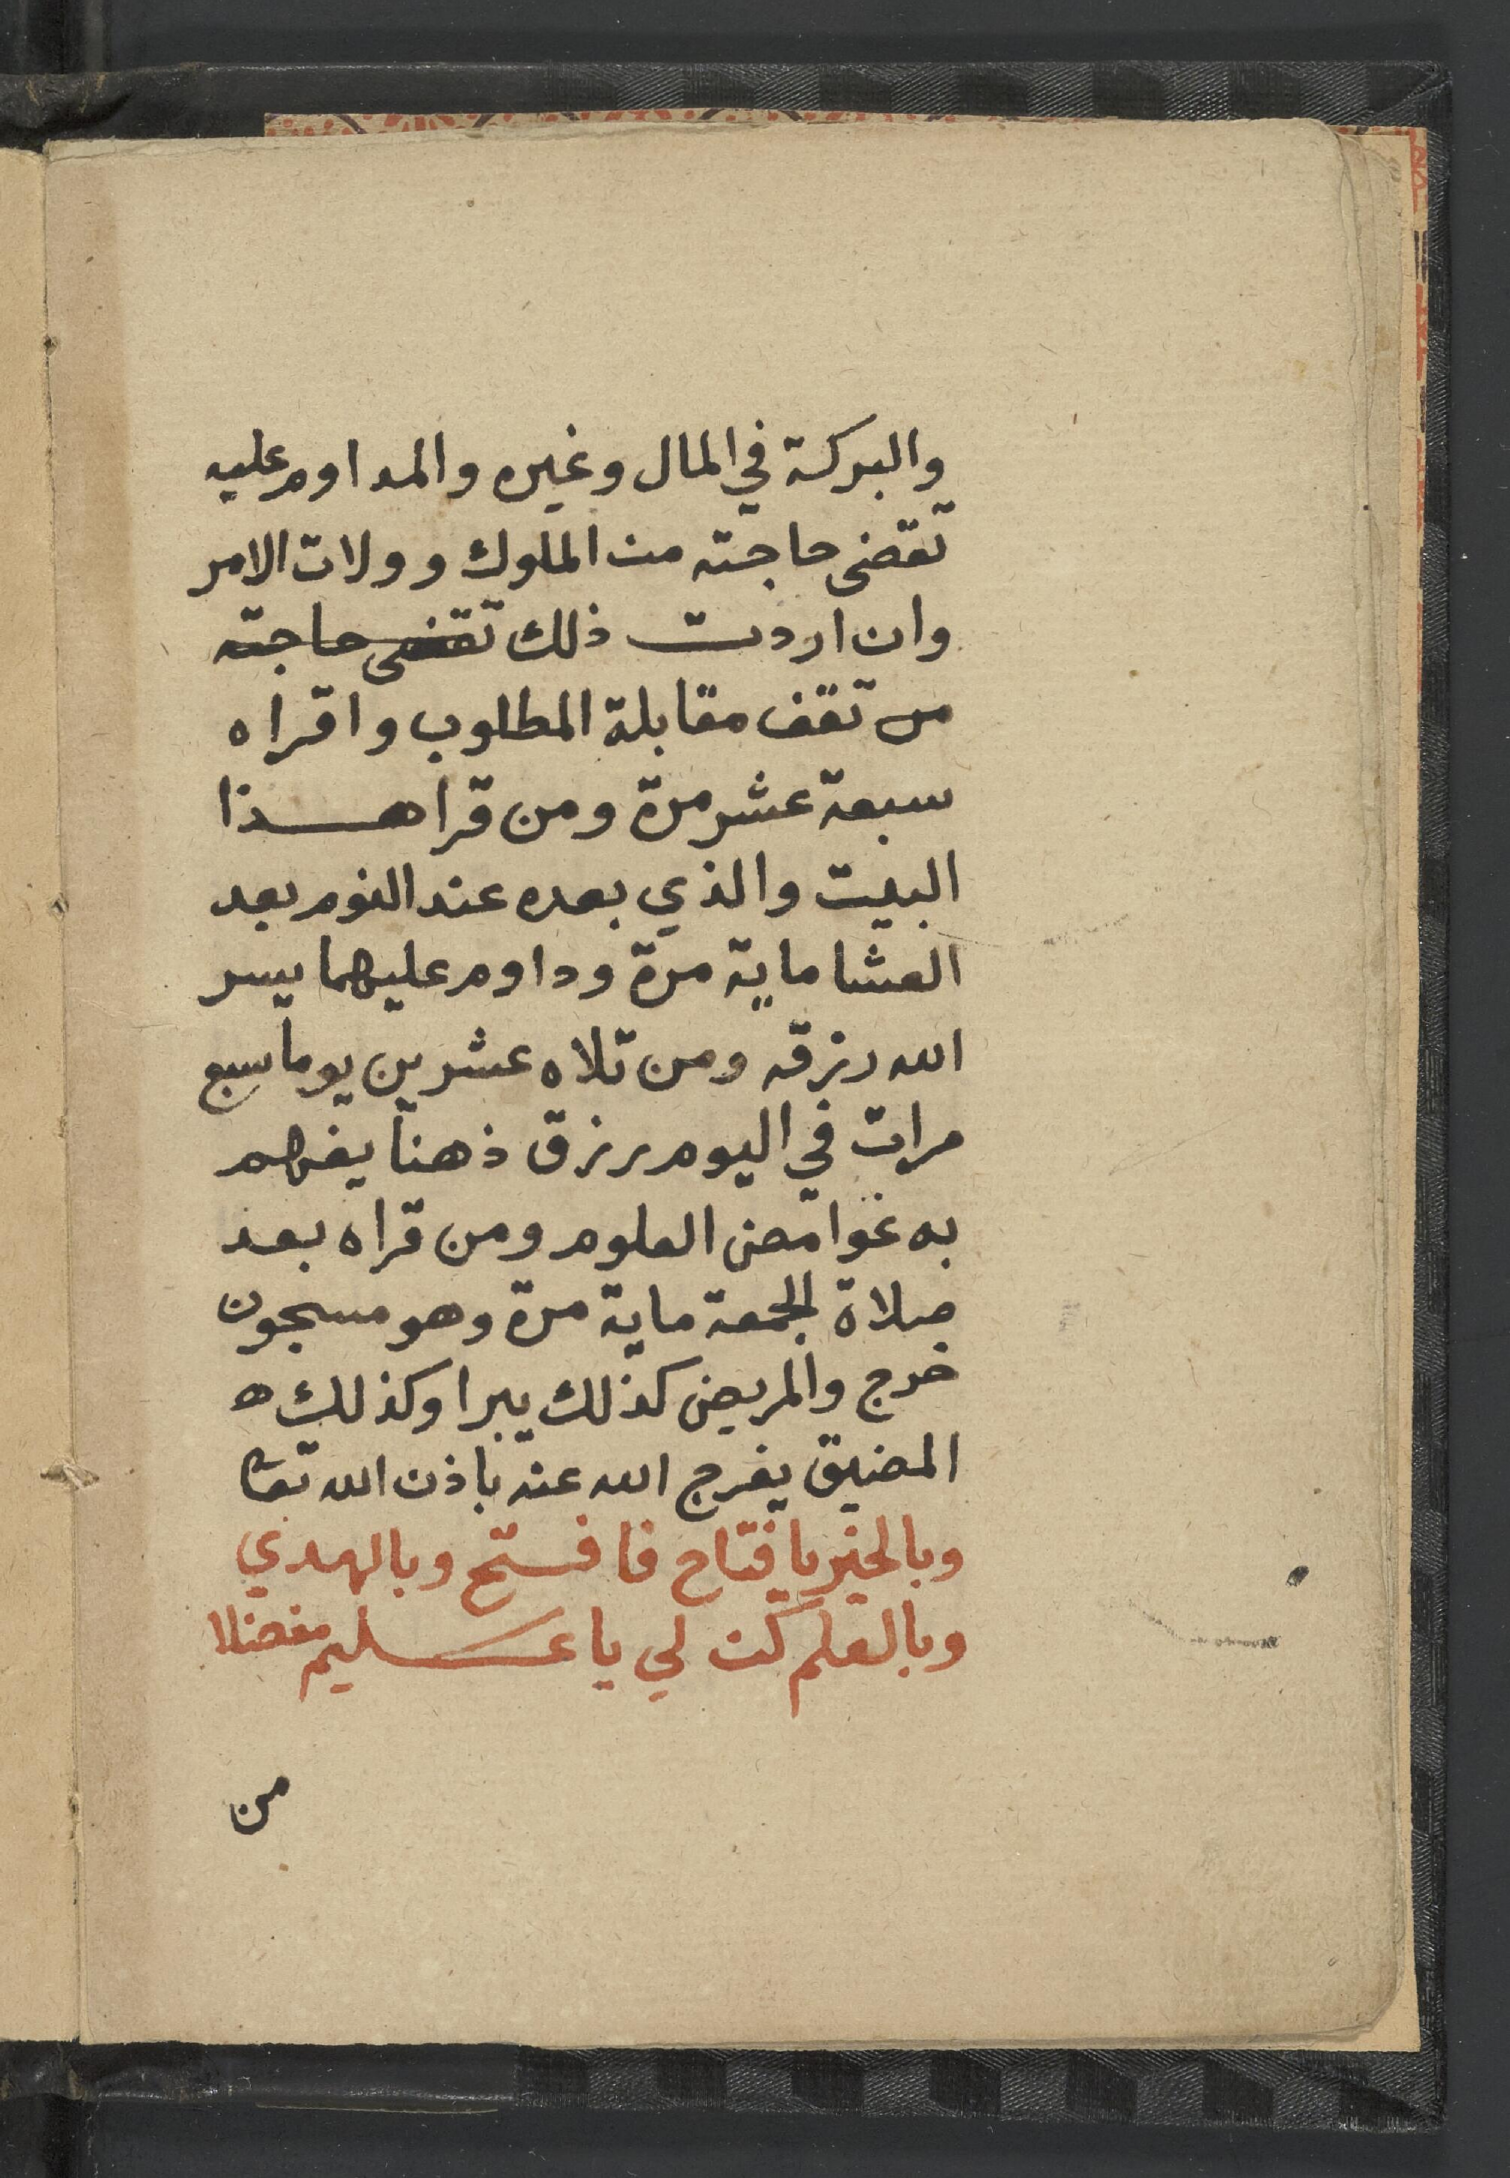 والبركة في المال وغيره والمداوم عليه
تقضى حاجته من الملوك وولات الامر
وان اردت ذلك تقضى حاجته
من تقف مقابلة المطلوب واقراه
سبعة عشر مرة ومن قرا هذا
البيت والذي بعده عند النوم بعد
العشا ماية مرة وداوم عليهما يسر
الله رزقه ومن تلاه عشرين يوما سبع
مرات في اليوم رزق ذهنا يفهم
به غوامض العلوم ومن قراه بعد
صلاة الجمعة ماية مرة وهو مسجون
خرج والمريض كذلك يبرا وكذلك ه
المضيق يفرج الله عنه باذن الله تعا
وبالخير يا فتاح فافتح وبالهدي
وبالعلم كن لي يا عليم مفضلا
من